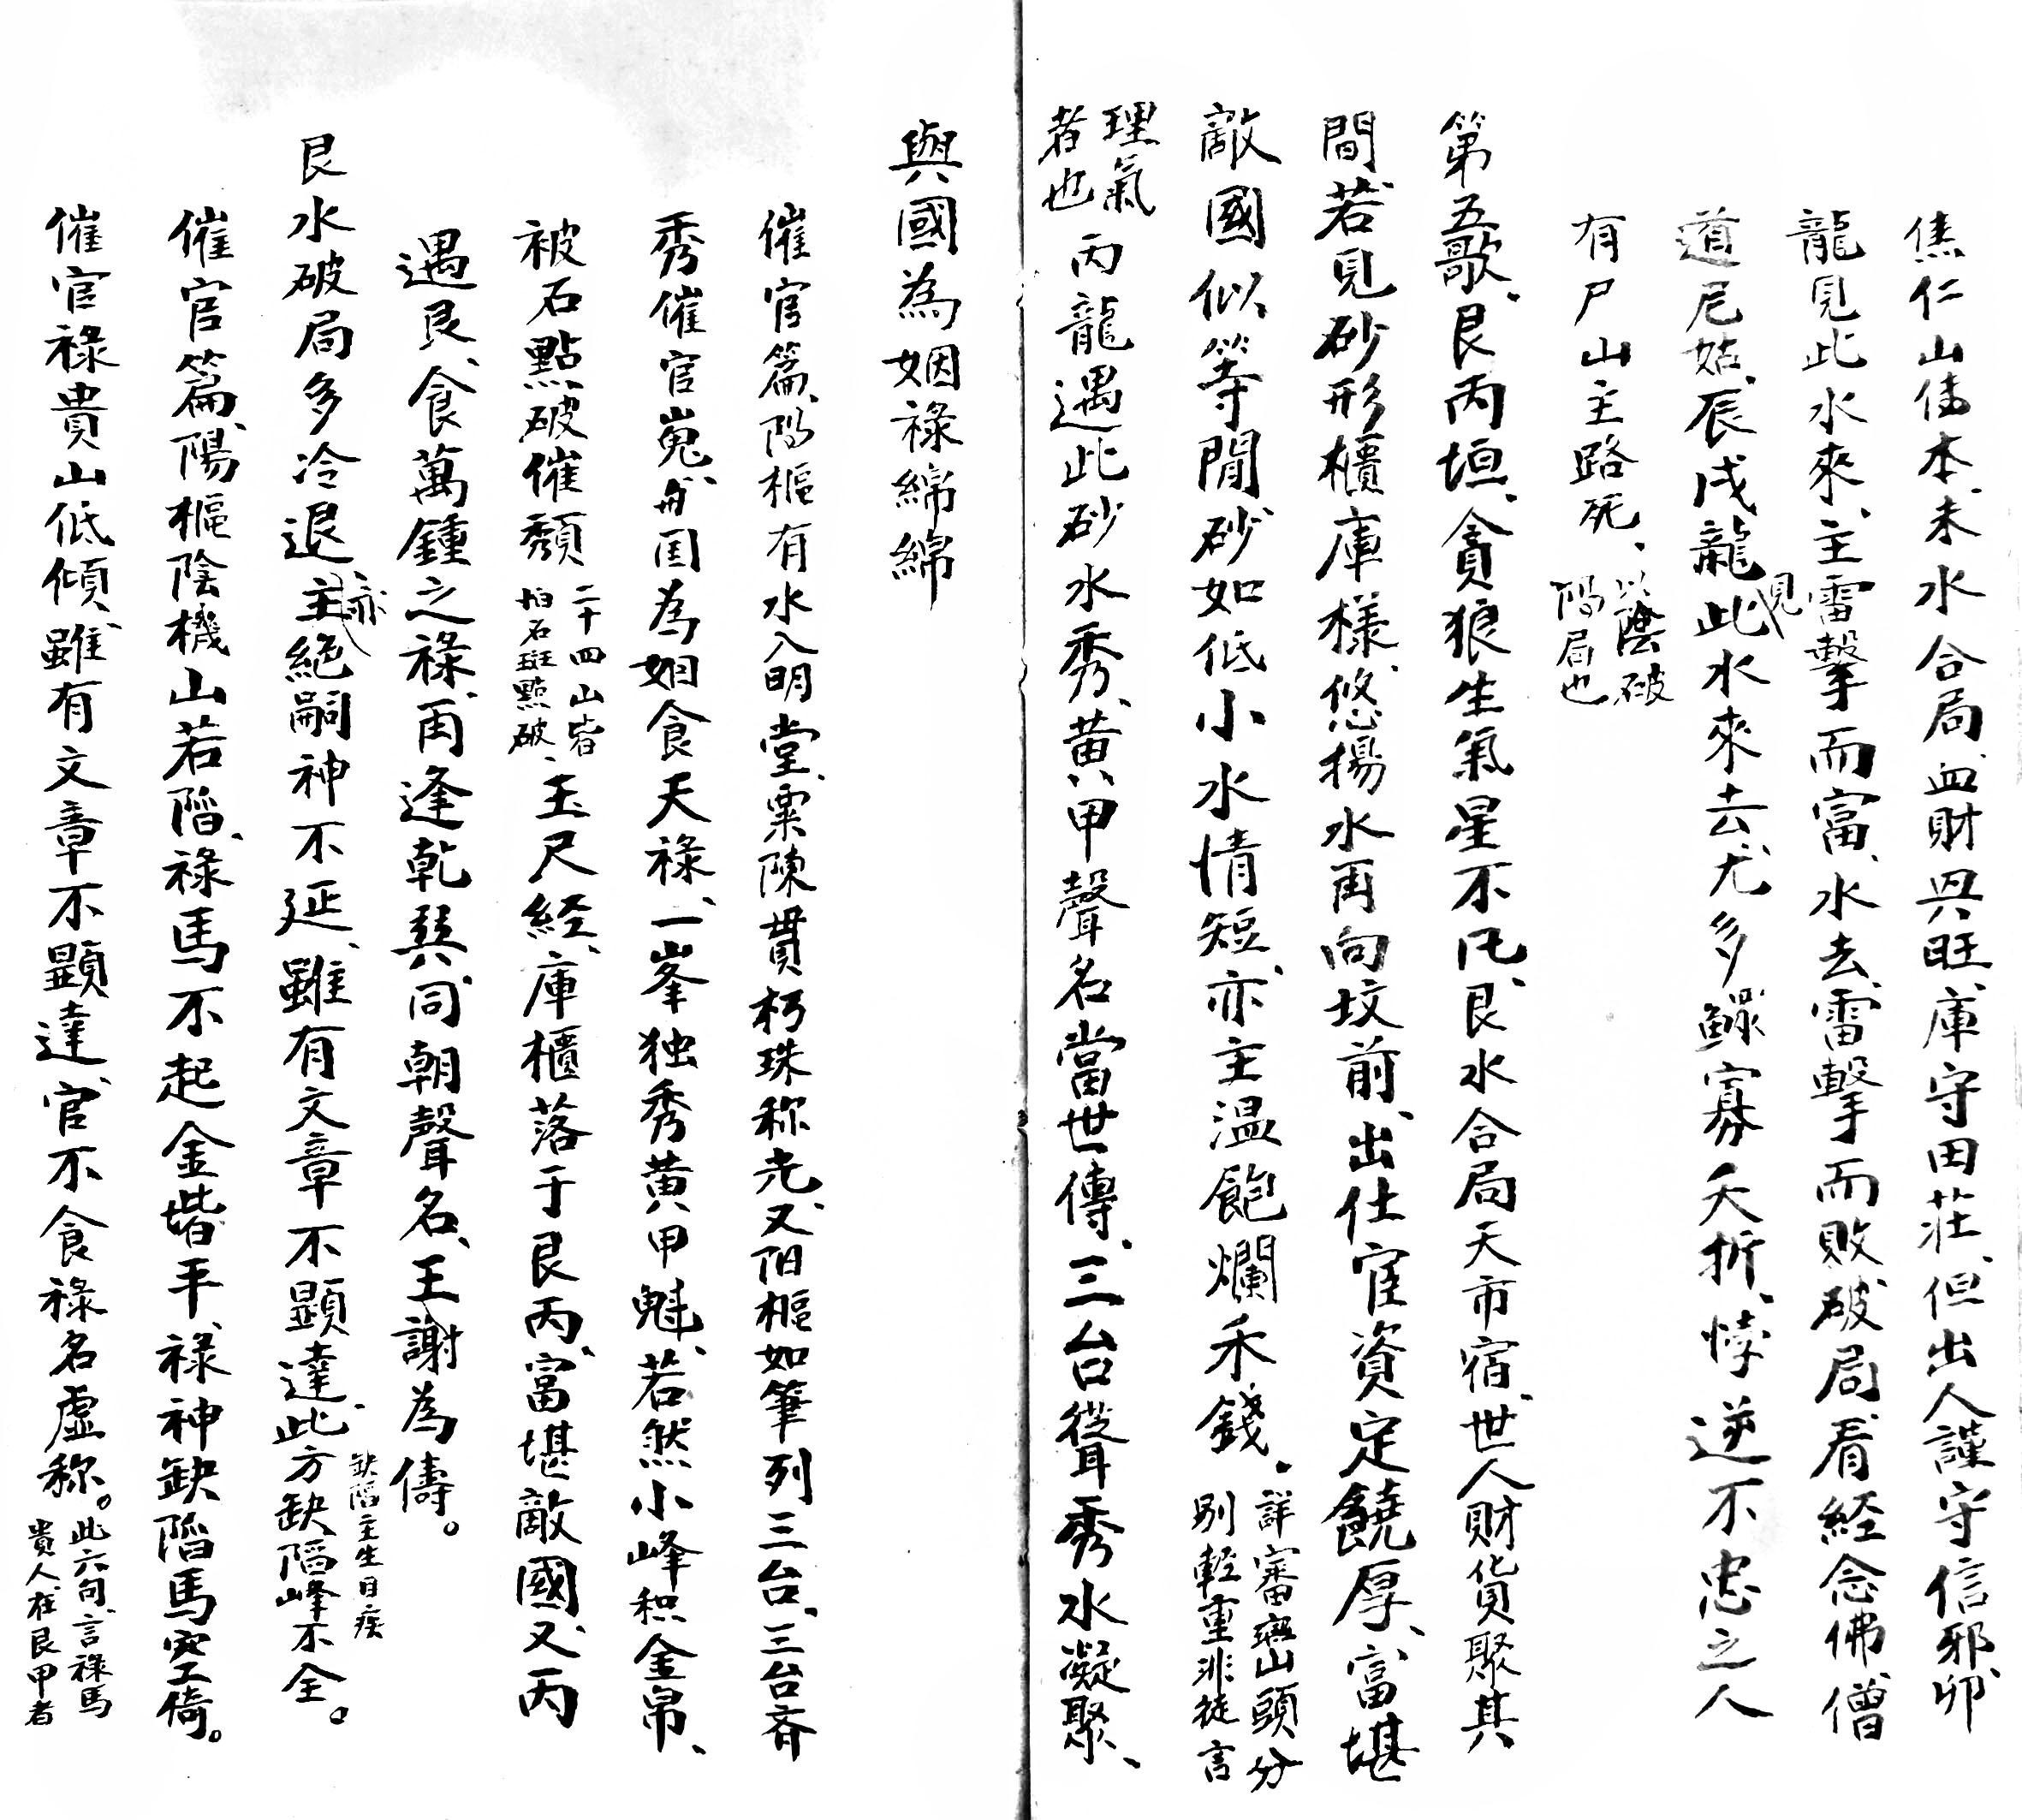 焦仁山佳本、未水合局、血財興旺、庫守田莊、但出人謹守信邪、卯
龍見此水來、主雷擊而富、水去、雷擊而敗、破局、看経念佛、僧
道尼姑、辰戌龍見此水來去、尤多鰥寡夭折、悖逆不忠之人
有尸山主路死、以陰破陽局也
第五歌、艮丙垣、貪狼生氣星不凡、艮水合局天市宿、世人財貨聚其
間、若見砂形櫃庫樣、悠揚水兩向坟前、出仕宦資定饒厚、富堪
敵國似等閒、砂如低小水情短、亦主溫飽爛禾錢、詳審巒山頭分別輕重非徒言
理氣者也丙龍遇此砂水秀、黃甲聲名當世傳、三台聳秀水凝聚、
與國為姻祿綿綿
催官篇、陽樞有水入明堂、粟陳貫朽珠称光、又陽樞如筆列三台、三台齐
秀催官嵬、與国為姻食天祿、一峯独秀黃甲魁、若然小峰积金帛、
被石點破催頽二十四山皆怕石斑點破、玉尺経、庫櫃落于艮丙、富堪敵國、又、丙
遇艮、食萬鍾之祿、再逢乾巽、同朝聲名、王謝為儔。
艮水破局多冷退、亦主絕嗣神不延、雖有文章不顯達、此方缺陷峰不全。缺陷主生目疾
催官篇、陽樞陰機山若陷、祿馬不起金堦平、祿神缺陷馬空倚。
催官祿貴山低傾、雖有文章不顯達、官不食祿名虛称。此六句、言祿馬貴人在艮甲者